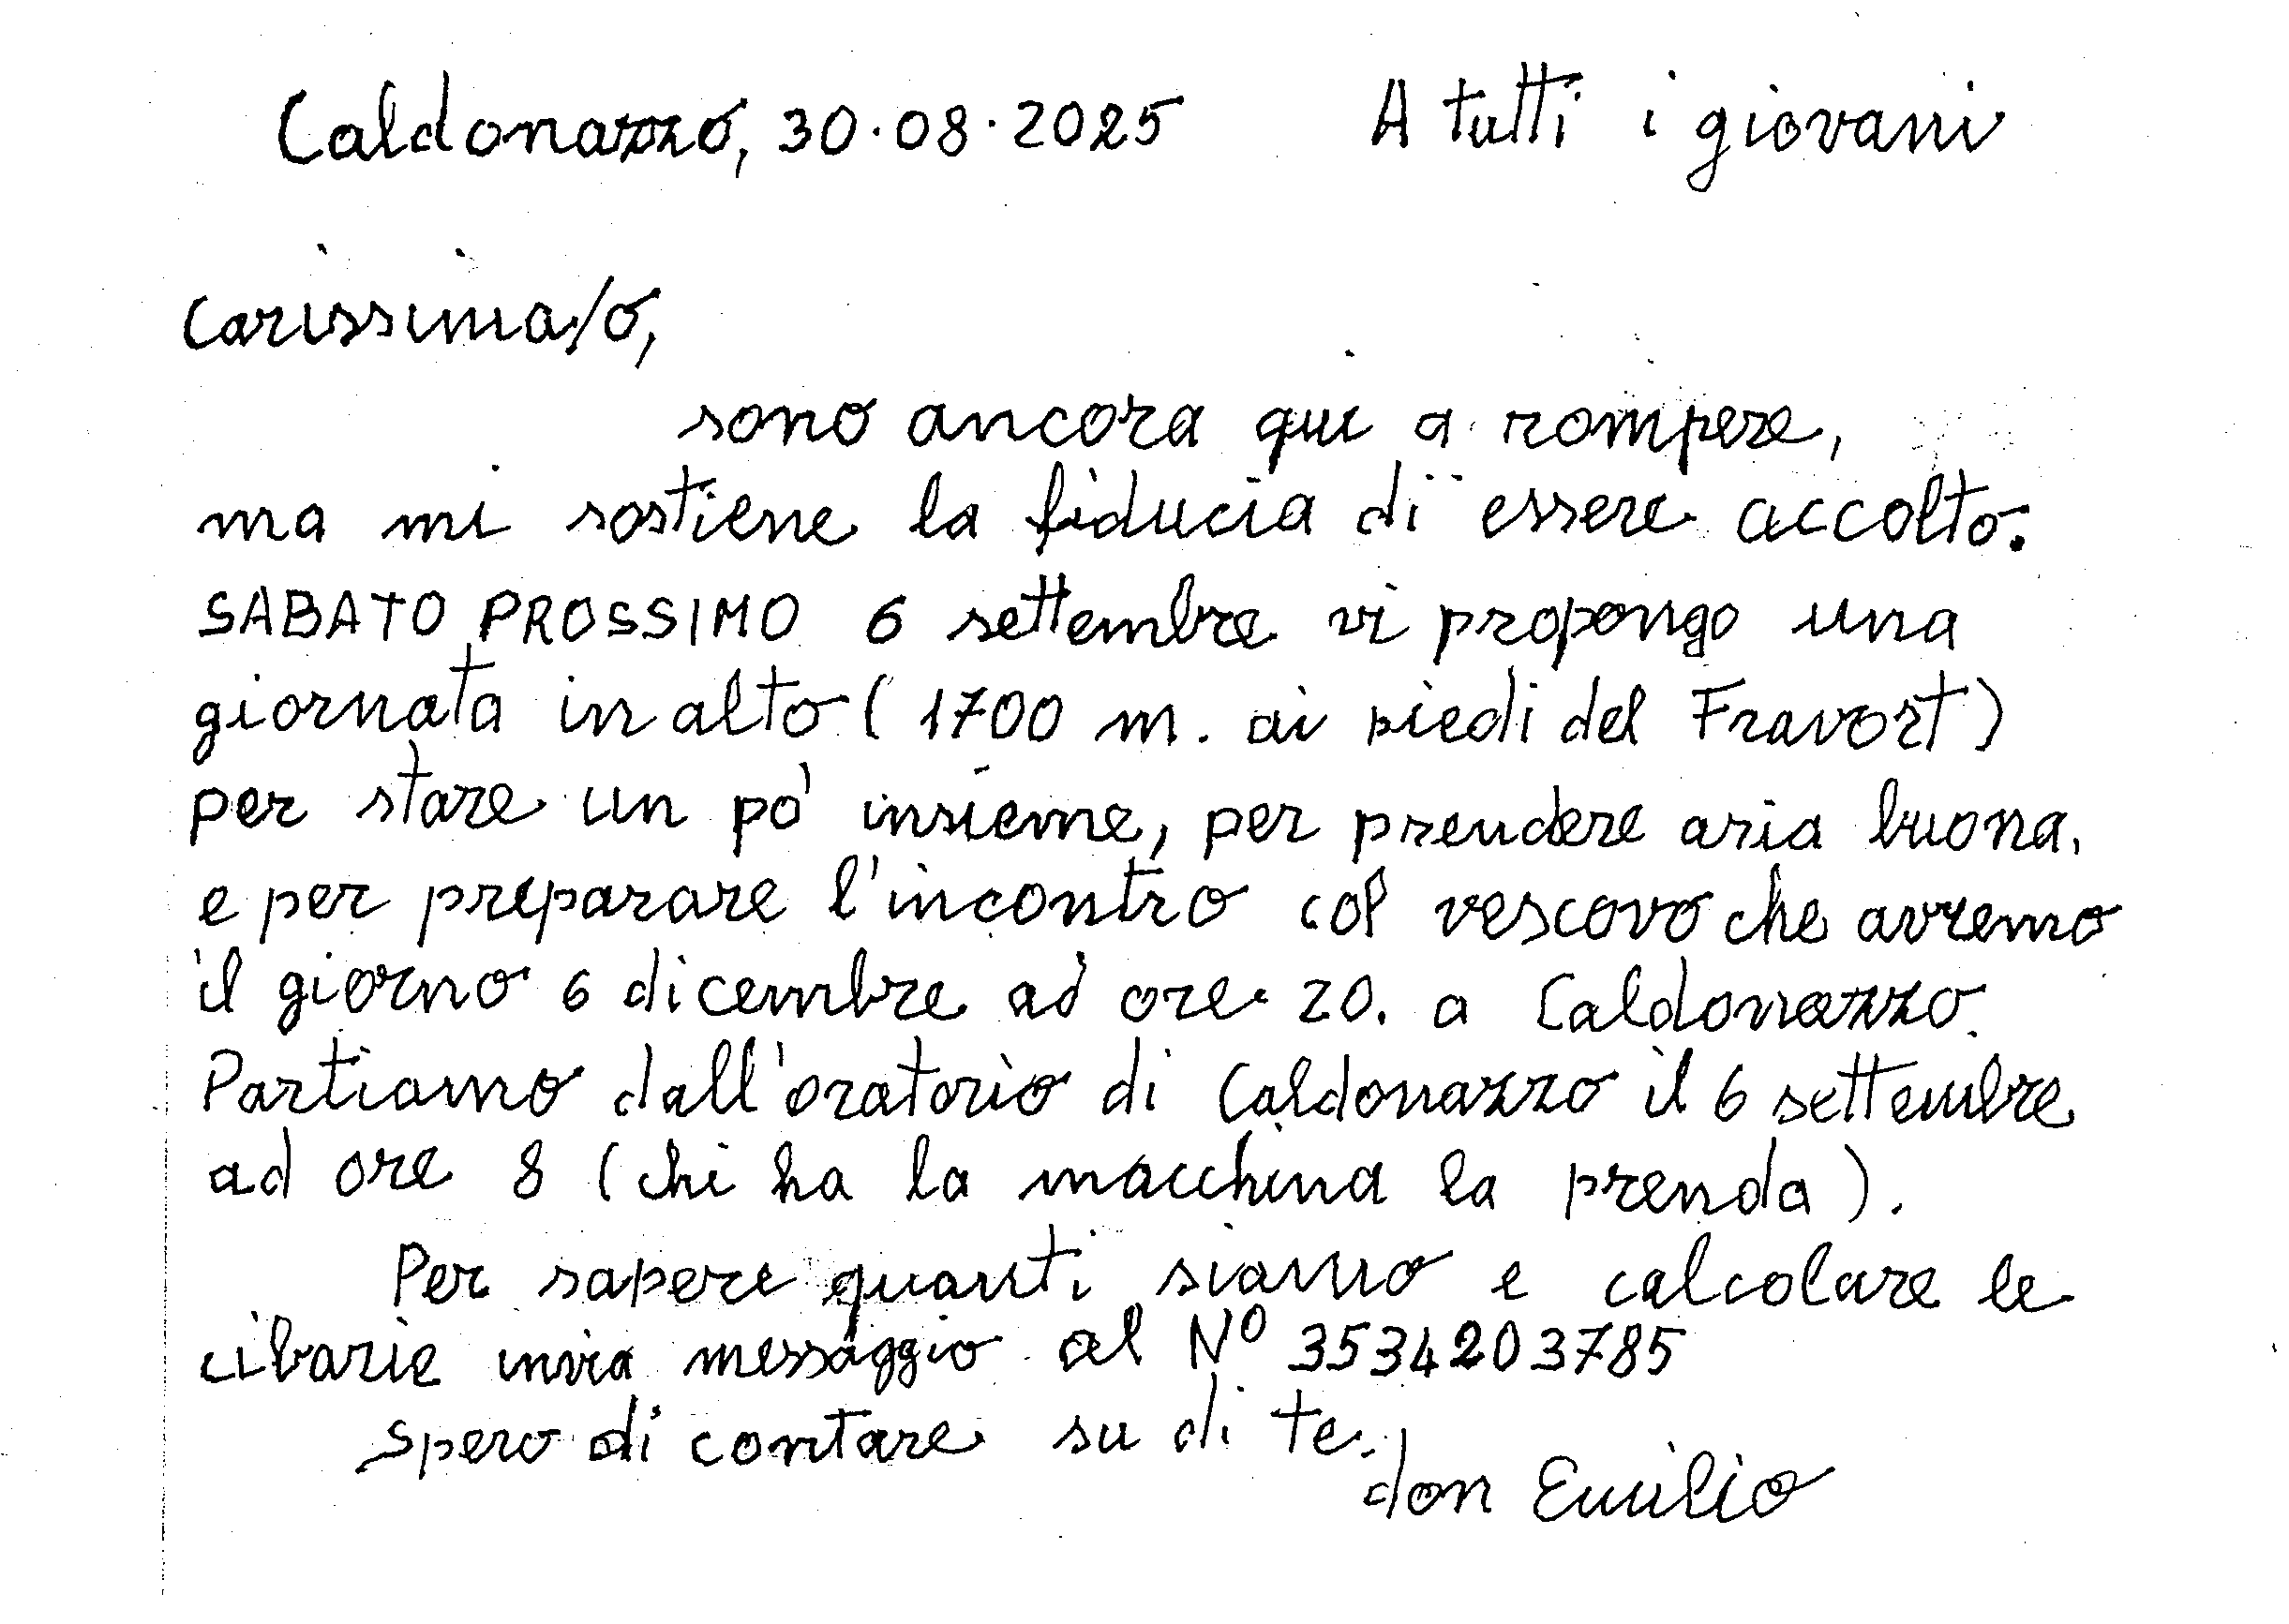 Caldonazzo, 30.08.2025 A tutti i giovani
Carissima/o,
sono ancora qui a rompere,
ma mi sostiene la fiducia di essere accolto.
SABATO PROSSIMO 6 settembre vi propongo una
giornata in alto (1700 m. ai piedi del Fravort)
per stare un po' insieme, per prendere aria buona.
e per preparare l'incontro col vescovo che avremo
il giorno 6 dicembre ad ore 20. a Caldonazzo.
Partiamo dall'oratorio di Caldonazzo il 6 settembre
ad ore 8 (chi ha la macchina la prenda).
Per sapere quanti siamo e calcolare le
cibarie invia messaggio al N° 3534203785
Spero di contare su di te.
don Emilio